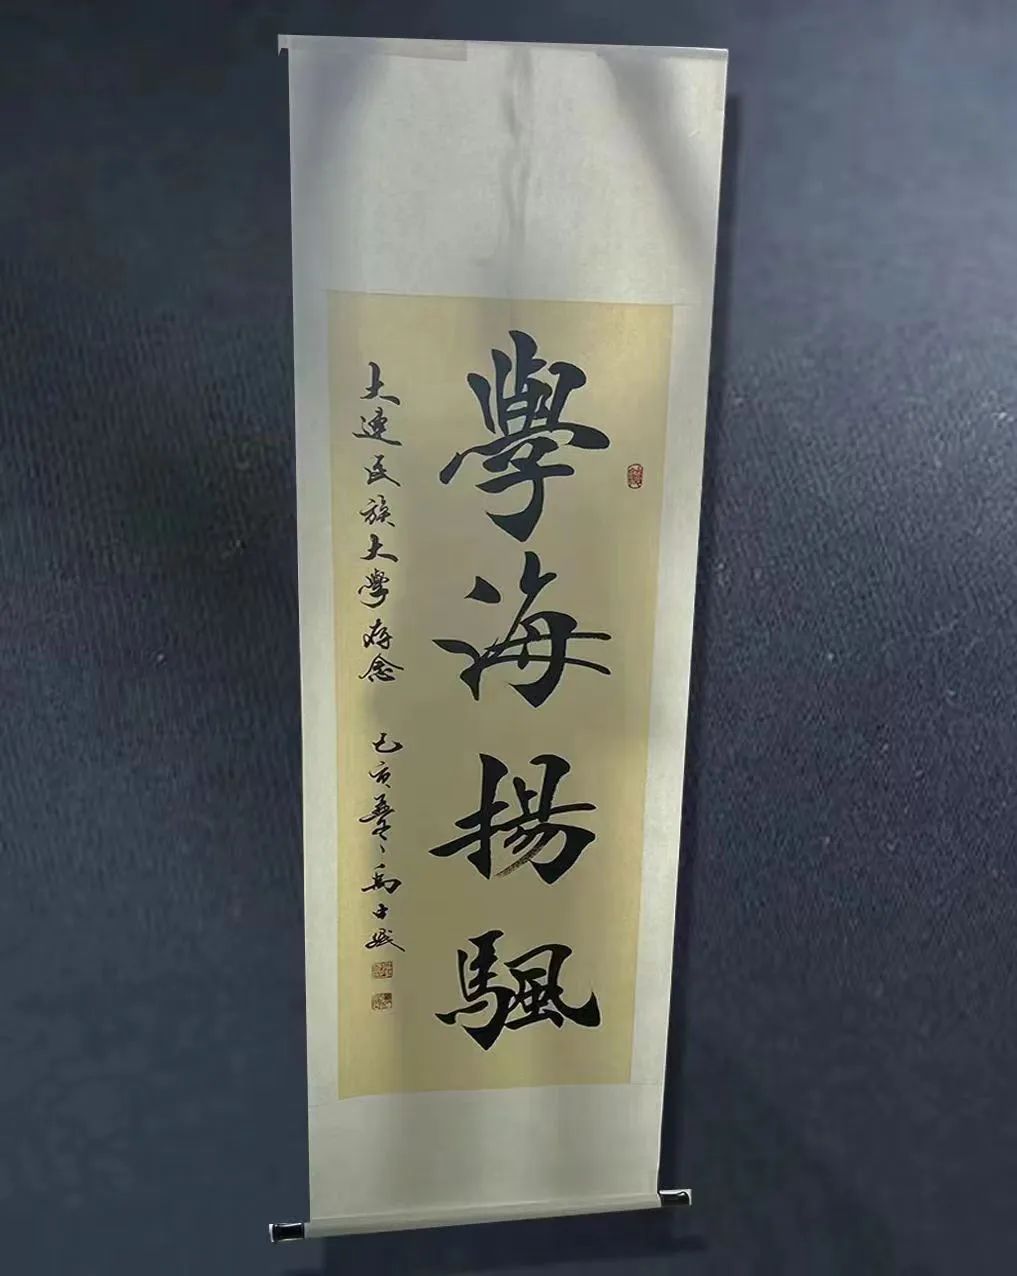 學海揚颿
大連民族大學存念 己亥春 禹士